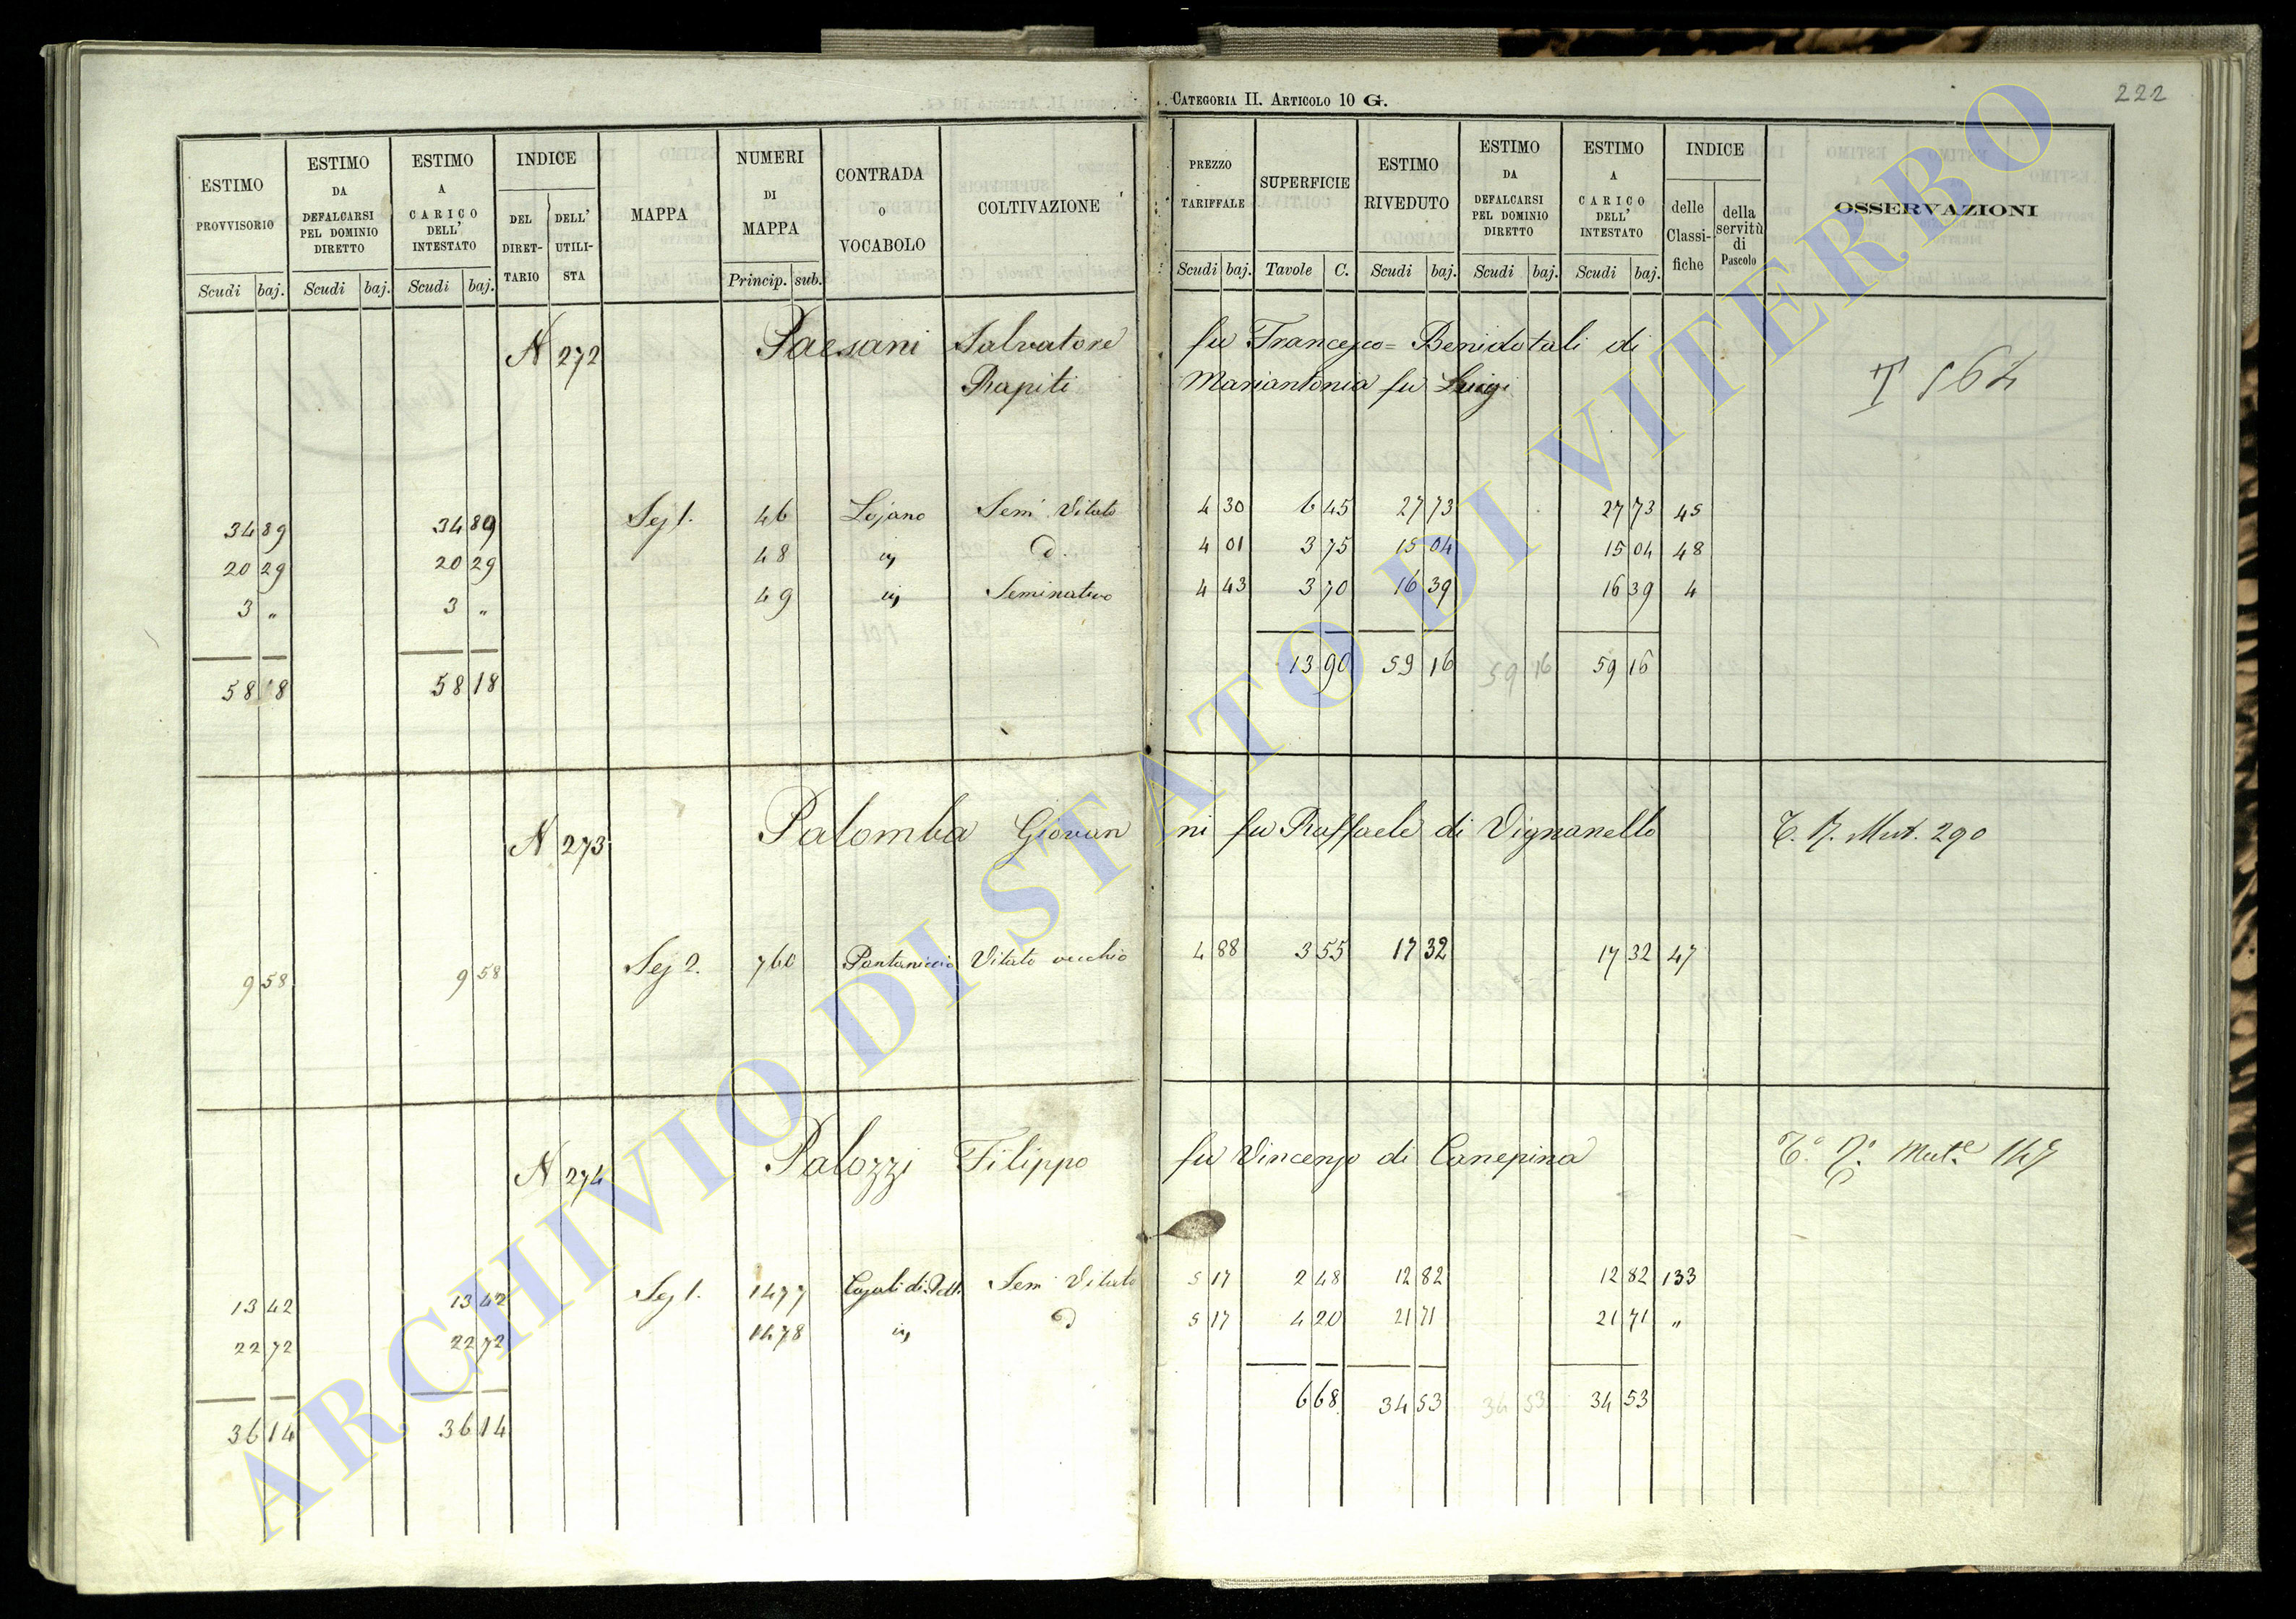 CATEGORIA II. ARTICOLO 10 G.
222
ESTIMO PROVVISORIO Scudi baj.
ESTIMO DA DEFALCARSI PEL DOMINIO DIRETTO Scudi baj.
ESTIMO A CARICO DELL' INTESTATO Scudi baj.
INDICE DEL DIRETTARIO DELL' UTILISTA
MAPPA
NUMERI DI MAPPA Princip. sub.
CONTRADA O VOCABOLO
COLTIVAZIONE
PREZZO TARIFFALE Scudi baj.
SUPERFICIE Tavole C.
ESTIMO RIVEDUTO Scudi baj.
ESTIMO DA DEFALCARSI PEL DOMINIO DIRETTO Scudi baj.
ESTIMO A CARICO DELL' INTESTATO Scudi baj.
INDICE delle Classifiche della servitù di Pascolo
OSSERVAZIONI
N 272 Paesani Salvatore fu Francesco = di T 564
Rapiti Mariantonia fu Luigi
34 89 34 89 Sez 1. 46 Lojano Sem Vitato 4 30 6 45 27 73 27 73 45
20 29 20 29 48 d. 4 01 3 75 15 04 15 04 48
3 „ 3 „ 49 Seminativo 4 43 3 70 16 39 16 39 4
58 18 58 18 13 90 59 16 59 16 59 16
N 273 Palomba Giovanni fu Raffaele di Vignanello Mut. 290
9 58 9 58 Sez 2. 760 Pantaniccio Vitato vecchio 4 88 3 55 17 32 17 32 47
N 274 Palozzi Filippo fu Vincenzo di Canepina Mut.e 147
13 42 13 42 Sez 1. 1477 Sem Vitato 5 17 2 48 12 82 12 82 133
22 72 22 72 1478 d 5 17 4 20 21 71 21 71 „
36 14 36 14 6 68 34 53 34 53 34 53
ARCHIVIO DI STATO DI VITERBO